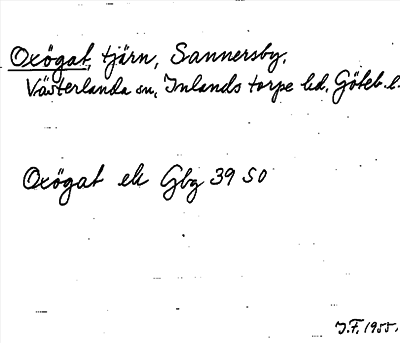 Oxögat, tjärn, Sannersby,
Västerlanda sn, Inlands torpe hd, Göteb. l.
Oxögat ek Gbg 39 SO
J.F. 1955.